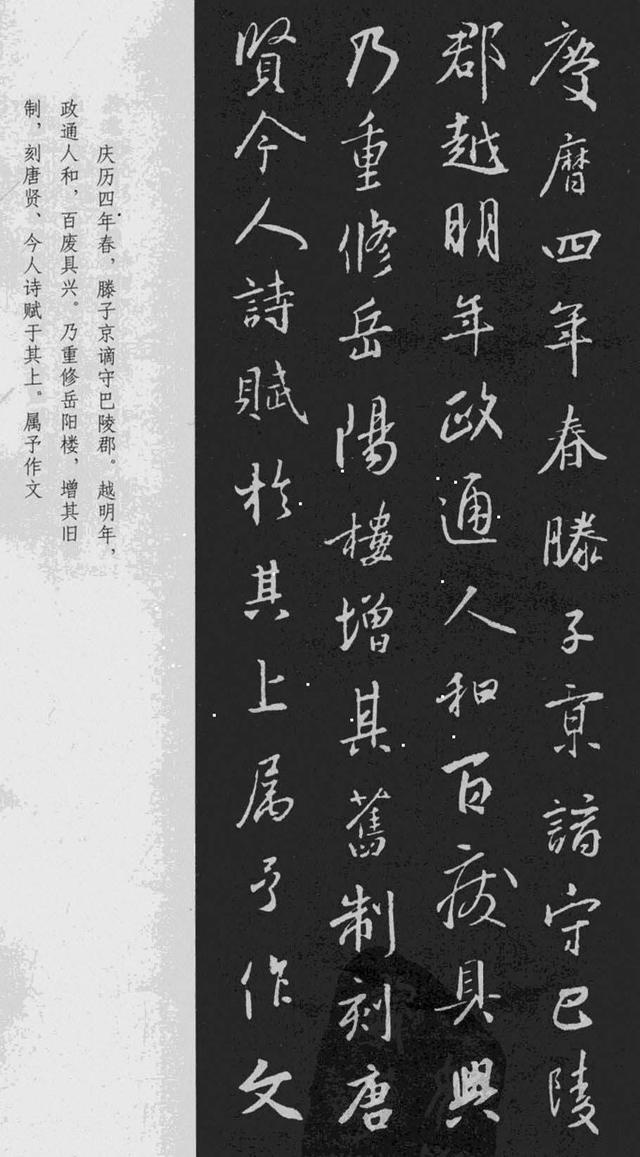 慶曆四年春滕子京謫守巴陵
郡越明年政通人和百废具興
乃重修岳陽樓增其舊制刻唐
賢今人詩賦於其上属予作文
庆历四年春，滕子京谪守巴陵郡。越明年，
政通人和，百废具兴。乃重修岳阳楼，增其旧
制，刻唐贤、今人诗赋于其上。属予作文